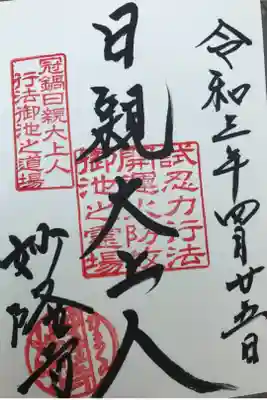 令和三年四月廿五日
日親大上人
試忍力行法
御池之霊場
冠鍋日親大上人
行法御池之道場
妙隆寺